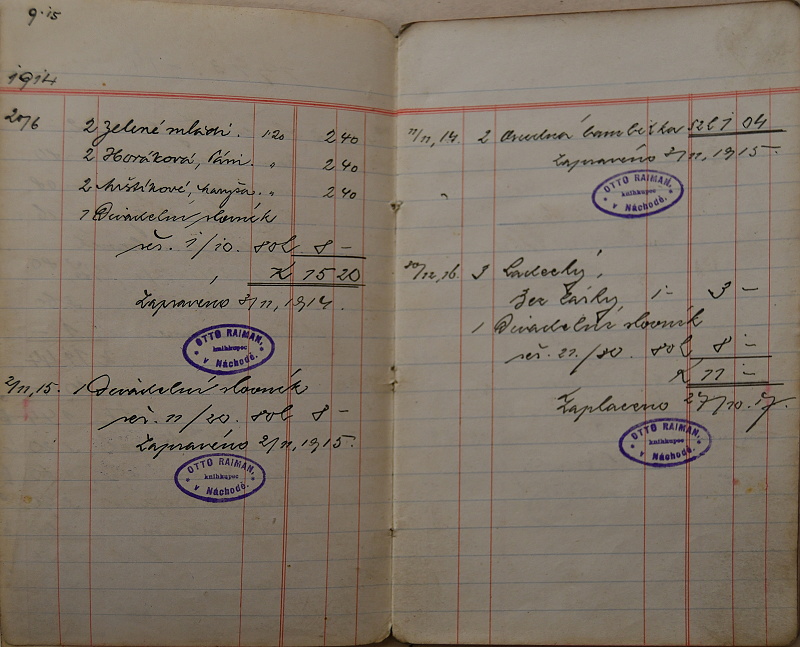 9·15
1914
20/6 2 Zelené mládí. 1·20 2 40
2 Horáková, „ 2 40
2 „ 2 40
1 Divadelní slovník
seš. 1/10. 80h 8 –
K 15 20
Zapraveno 3/11, 1914.
OTTO RAIMAN,
knihkupec
v Náchodě.
2/11, 15. 1 Divadelní slovník
seš. 11/20. 80h 8 –
Zapraveno 2/11, 1915.
OTTO RAIMAN,
knihkupec
v Náchodě.
11/11, 14. 2 04
Zapraveno 2/11, 1915.
OTTO RAIMAN,
knihkupec
v Náchodě.
30/12, 16. 3 Ladecký,
Bez lásky 1– 3 –
1 Divadelní slovník
seš. 21./30. 80h 8 –
K 11 –
Zaplaceno 27/10. 17.
OTTO RAIMAN,
knihkupec
v Náchodě.